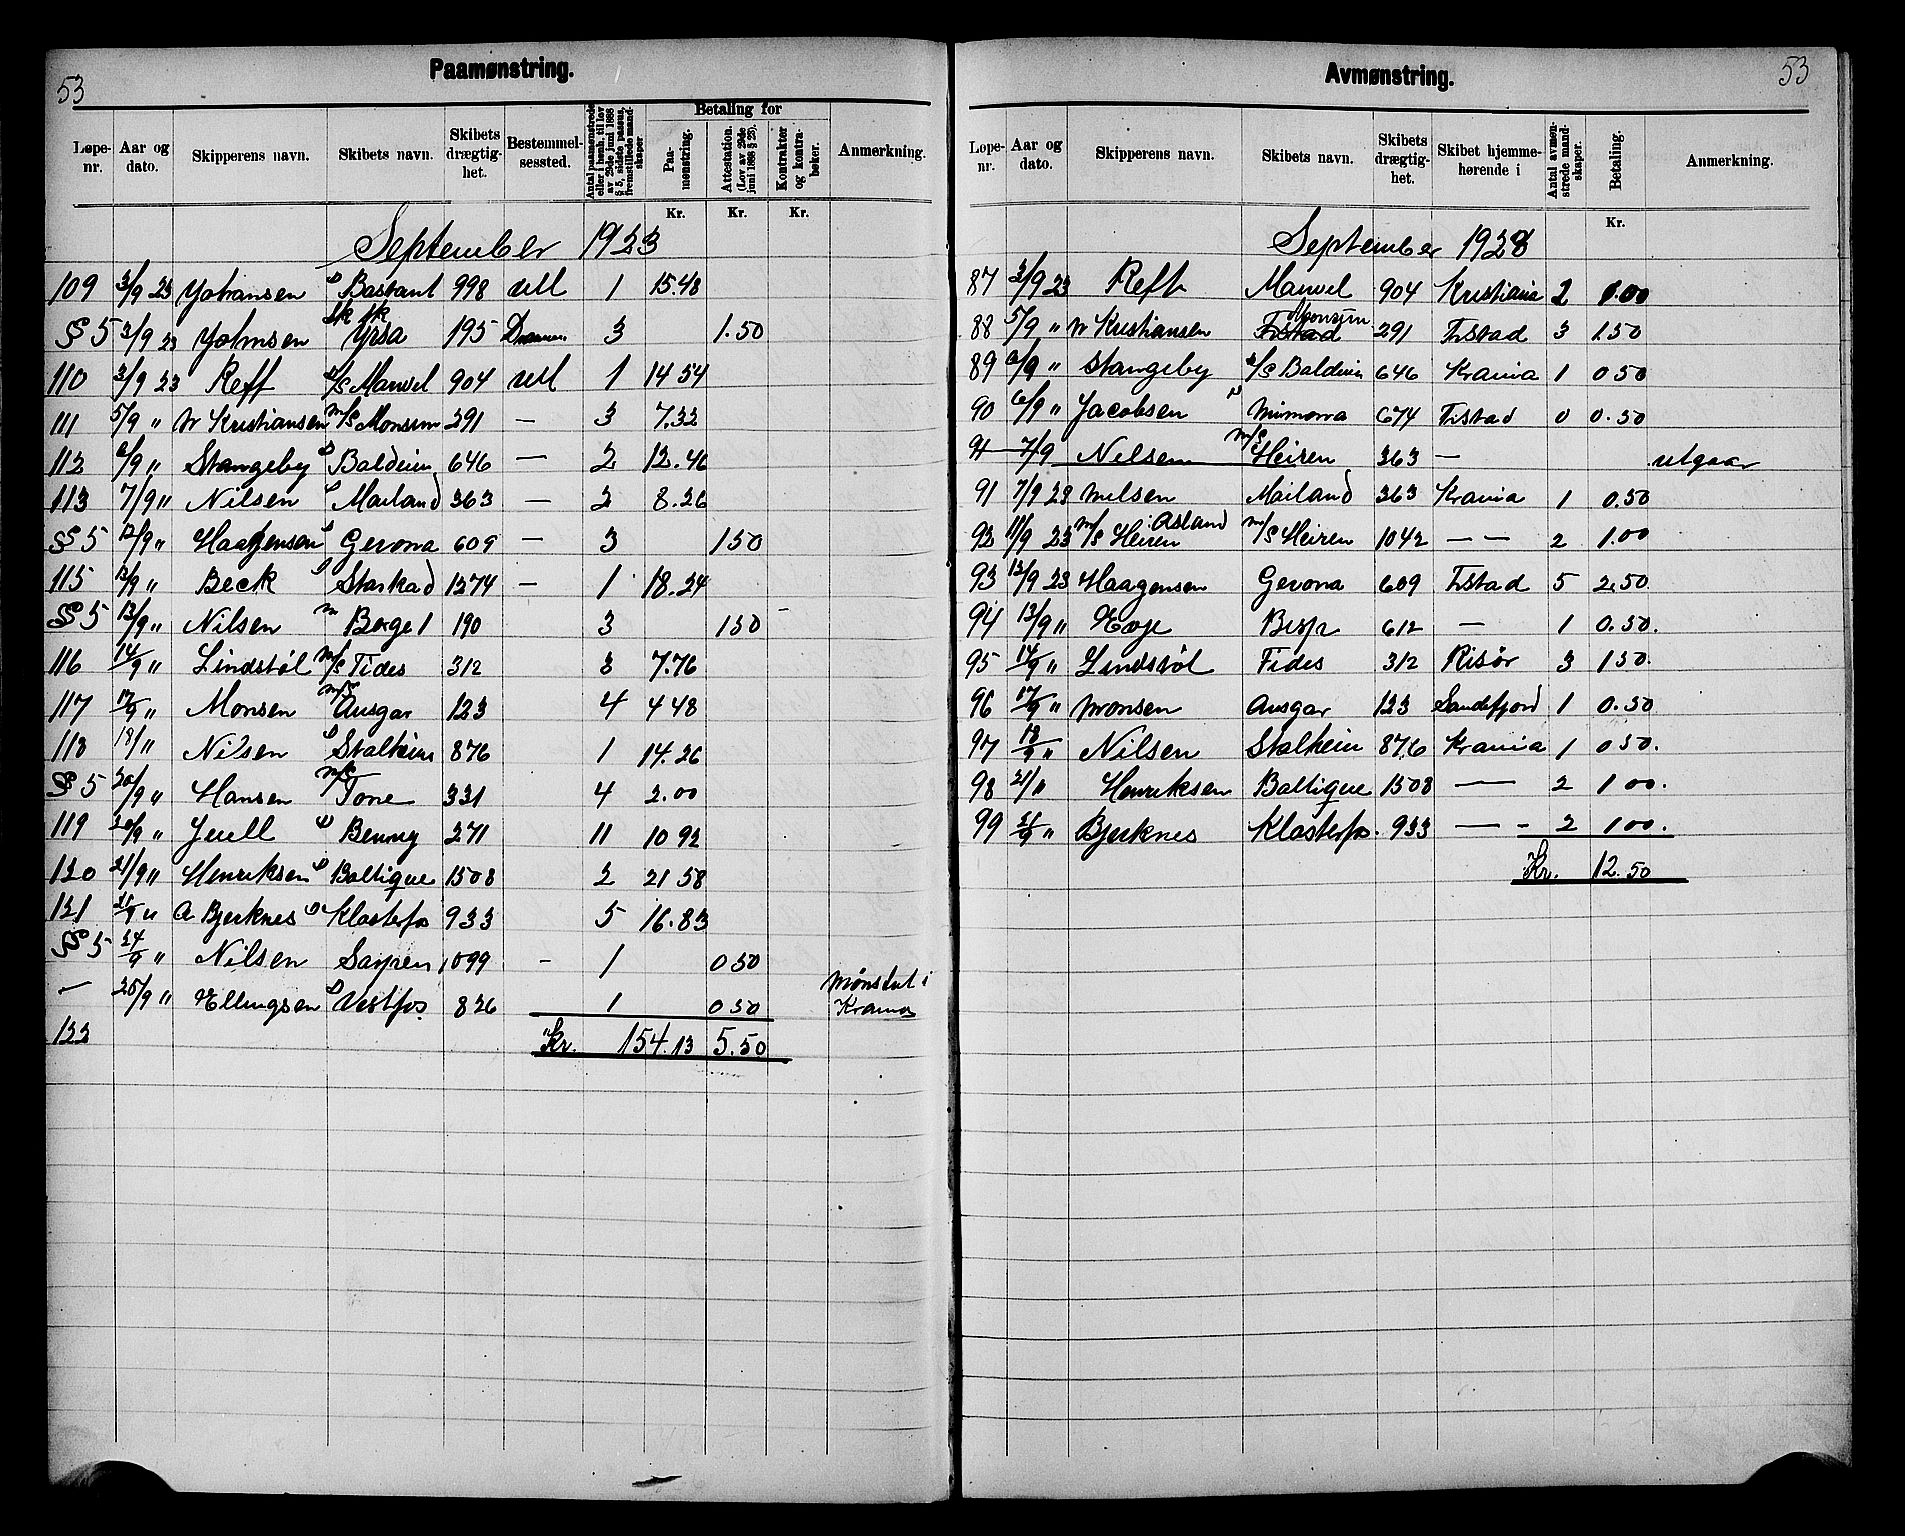 53
Paamønstring.
Løpe-nr. Aar og dato. Skipperens navn. Skibets navn. Skibets drægtighet. Bestemmelsessted. Antal paamønstrede eller i henh. til lov av 29de juni 1888 § 5, sidste passus, fremstillede mandskaper Betaling for Paamønstring. Attestation. (Lov av 29de juni 1888 § 23). Kontrakter og kontrabøker. Anmerkning.
Kr. Kr. Kr.
September 1923
109 3/9 23 Johansen Bastant 998 Utl 1 15.48
§ 5 3/9 23 Johnsen Yrsa 195 Drammen 3 1.50
110 3/9 23 Reff Manvel 904 Utl 1 14 54
111 5/9 " W Kristiansen m/s Monsun 291 — 3 7.32
112 6/9 " Stangeby Balduin 646 — 2 12.46
113 7/9 " Nilsen Mailand 363 — 2 8.26
§ 5 12/9 " Haagensen Gerona 609 — 3 150
115 12/9 " Beck Starkad 1274 — 1 18.24
§ 5 13/9 " Nilsen m Borge 1 190 3 150
116 14/9 " Lindstøl m/s Fides 312 3 7.76
117 17/9 " Monsen m/s Ansgar 123 4 4 48
118 18/ " Nilsen Stalheim 876 1 14.26
§ 5 20/9 " Hansen m/s Tone 331 4 2.00
119 20/9 " Juell Benny 271 11 10 92
120 21/9 " Henriksen Baltique 1508 2 21 58
121 21/9 " A Bjerknes Klosterfos 933 5 16.83
§ 5 24/9 " Nilsen Sarpen 1099 - 1 0 50
— 25/9 " Ellingsen Vestfos 826 1 0 50 Mønstret i Krania
122 Kr. 154.13 5.50
53
Avmønstring.
Løpe-nr. Aar og dato. Skipperens navn. Skibets navn. Skibets drægtighet. Skibet hjemmehørende i Antal avmønstrede mandskaper. Betaling. Anmerkning.
Kr.
September 1923
87 3/9 23 Reff Manvel 904 Kristiania 2 1.00
88 5/9 " W Kristiansen Frstad Monsun 291 Frstad 3 1.50
89 6/9 " Stangeby s/s Balduin 646 Krania 1 0 50
90 6/9 " Jacobsen Mimona 674 Frstad 0 0.50
91 7/9 Nilsen m/s Heiren 363 — utgaar
91 7/9 23 Nilsen Mailand 363 Krania 1 0.50
92 11/9 23 m/s Heiren Asland m/s Heiren 1042 — — 2 1.00
93 12/9 23 Haagensen Gerona 609 Frstad 5 2.50
94 13/9 " Bisp 612 — 1 0.50.
95 14/9 " Lindstøl Fides 312 Risør 3 150.
96 17/9 " Monsen Ansgar 123 Sandefjord 1 0.50
97 18/9 " Nilsen Stalheim 876 Krania 1 050.
98 21/ " Henriksen Baltique 1508 — 2 1 00.
99 21/9 " Bjerknes Klosterfos. 933 — - 2 100.
Kr. 12.50